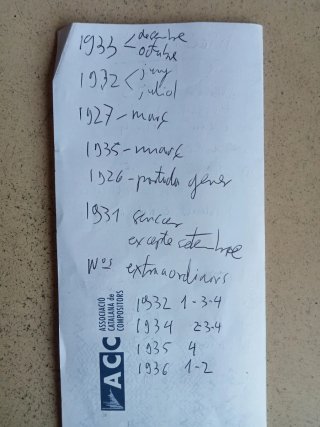 1933 < desembre
octubre
1932 < juny
juliol
1927 - març
1935 - març
1926 - portada gener
1931 sencer
excepte setembre
Nos extraordinaris
1932 1-3-4
1934 2-3-4
1935 4
1936 1-2
ACC
ASSOCIACIÓ
CATALANA de
COMPOSITORS